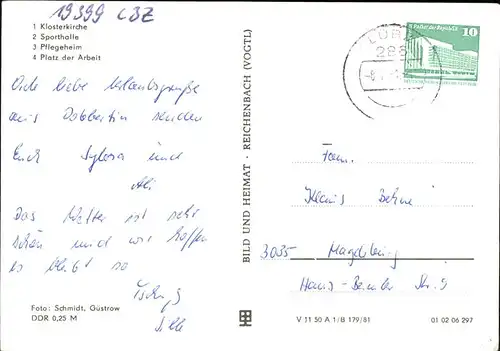 19399 CBZ
1 Klosterkirche
2 Sporthalle
3 Pflegeheim
4 Platz der Arbeit
Viele liebe Urlaubsgrüße
aus Dobbertin senden
Euch Sylvia und
Das Wetter ist sehr
schön und wir hoffen
es bleibt so
Foto: Schmidt, Güstrow
DDR 0,25 M
BILD UND HEIMAT · REICHENBACH (VOGTL)
LÜBZ
286
10
Palast der Republik
Fam.
Klaus
3035 Magdeburg
Hans-
V 11 50 A 1/B 179/81
01 02 06 297